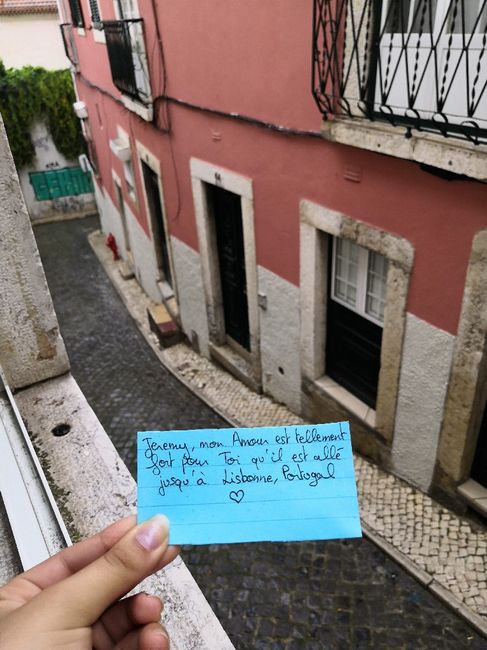 Jeremy, mon Amour est tellement
fort pour Toi qu'il est allé
jusqu'à Lisbonne, Portugal
♡